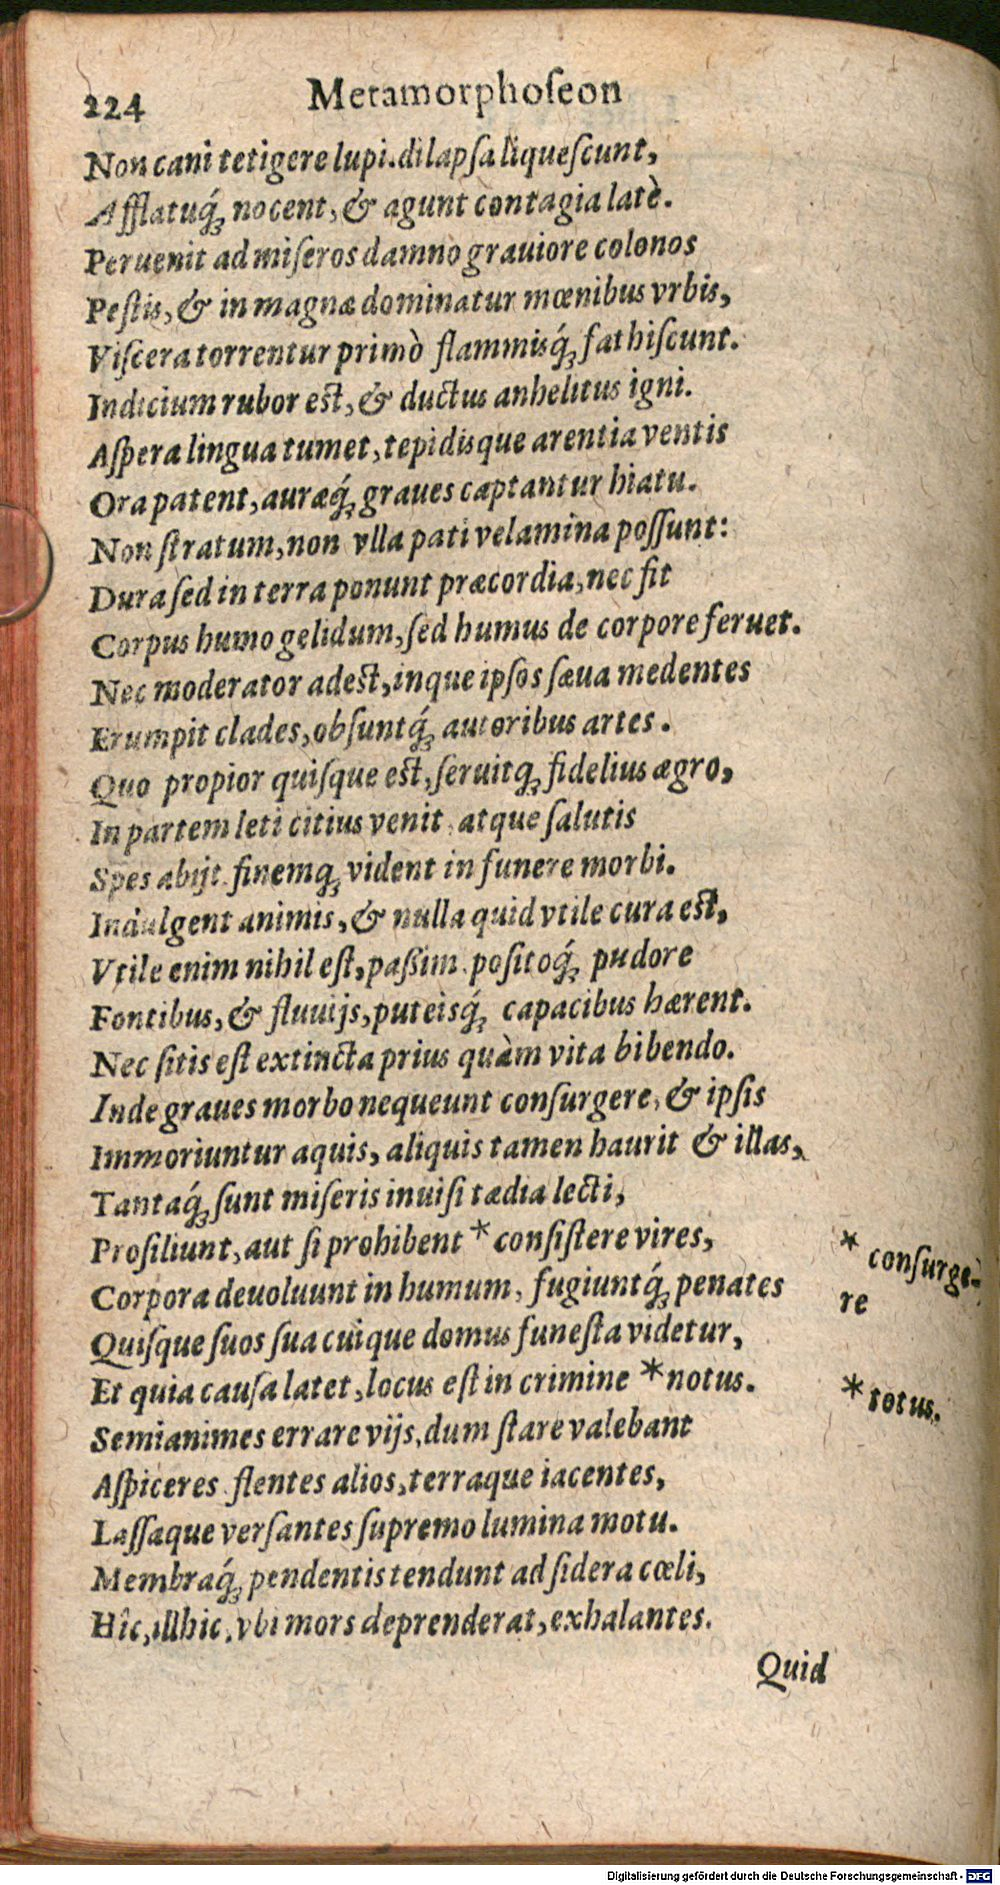 224 Metamorphoſeon
Non cani tetigere lupi. dilapſa liqueſcunt,
Afflatuq́; nocent, & agunt contagia latè.
Peruenit ad miſeros damno grauiore colonos
Peſtis, & in magnæ dominatur mœnibus vrbis,
Viſcera torrentur primò flammisq́; fathiſcunt.
Indicium rubor eſt, & ductus anhelitus igni.
Aſpera lingua tumet, tepidisque arentia ventis
Ora patent, auræq́; graues captantur hiatu.
Non ſtratum, non vlla pati velamina poſſunt:
Dura ſed in terra ponunt præcordia, nec fit
Corpus humo gelidum, ſed humus de corpore feruet.
Nec moderator adeſt, inque ipſos ſæua medentes
Erumpit clades, obſuntq́; autoribus artes.
Quo propior quiſque eſt, ſeruitq; fidelius ægro,
In partem leti citius venit, atque ſalutis
Spes abijt, finemq; vident in funere morbi.
Indulgent animis, & nulla quid vtile cura eſt,
Vtile enim nihil eſt, paßim, poſitoq́; pudore
Fontibus, & fluuijs, puteisq́; capacibus hærent.
Nec ſitis eſt extincta prius quàm vita bibendo.
Inde graues morbo nequeunt conſurgere, & ipſis
Immoriuntur aquis, aliquis tamen haurit & illas,
Tantaq́; ſunt miſeris inuiſi tædia lecti,
Proſiliunt, aut ſi prohibent * conſiſtere vires,
* conſurge-
re
Corpora deuoluunt in humum, fugiuntq́; penates
Quiſque ſuos ſua cuique domus funeſta videtur,
Et quia cauſa latet, locus eſt in crimine * notus.
* totus.
Semianimes errare vijs, dum ſtare valebant
Aſpiceres flentes alios, terraque iacentes,
Laſſaque verſantes ſupremo lumina motu.
Membraq́; pendentis tendunt ad ſidera cœli,
Hîc, illhic, vbi mors deprenderat, exhalantes.
Quid
Digitalisierung gefördert durch die Deutsche Forschungsgemeinschaft - DFG